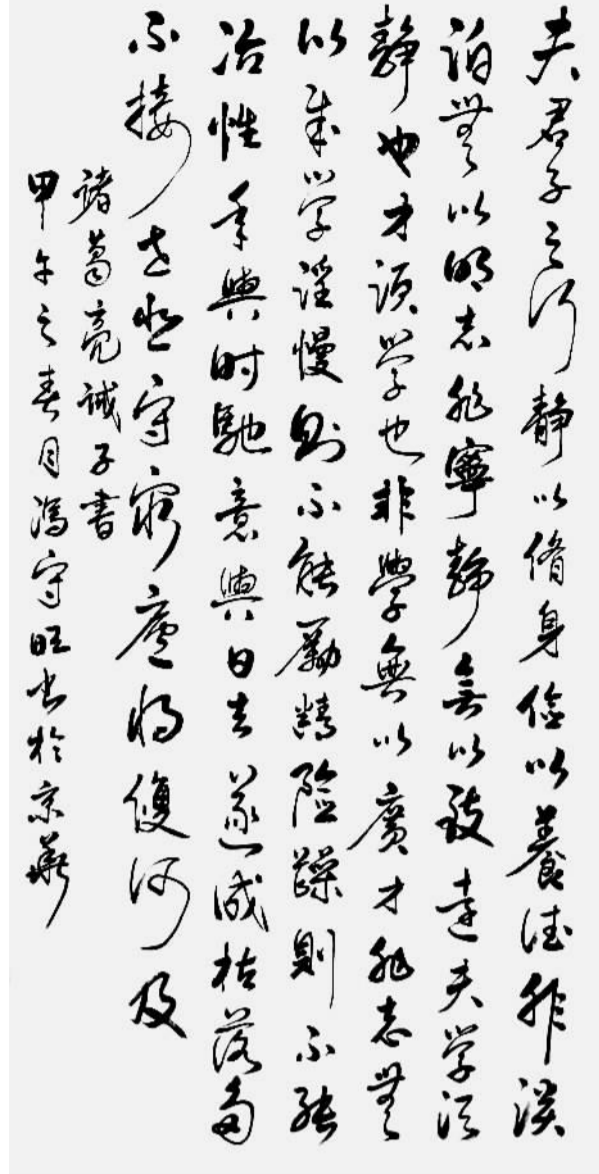 夫君子之行靜以脩身俭以養德非淡
泊無以明志非寧靜無以致遠夫学須
靜也才須学也非學無以廣才非志無
以成学淫慢则不能勵精险躁則不能
冶性年與时馳意與日去遂成枯落多
不接世悲守窮廬将復何及
諸葛亮誡子書
甲午之春月馮守旺书於京華